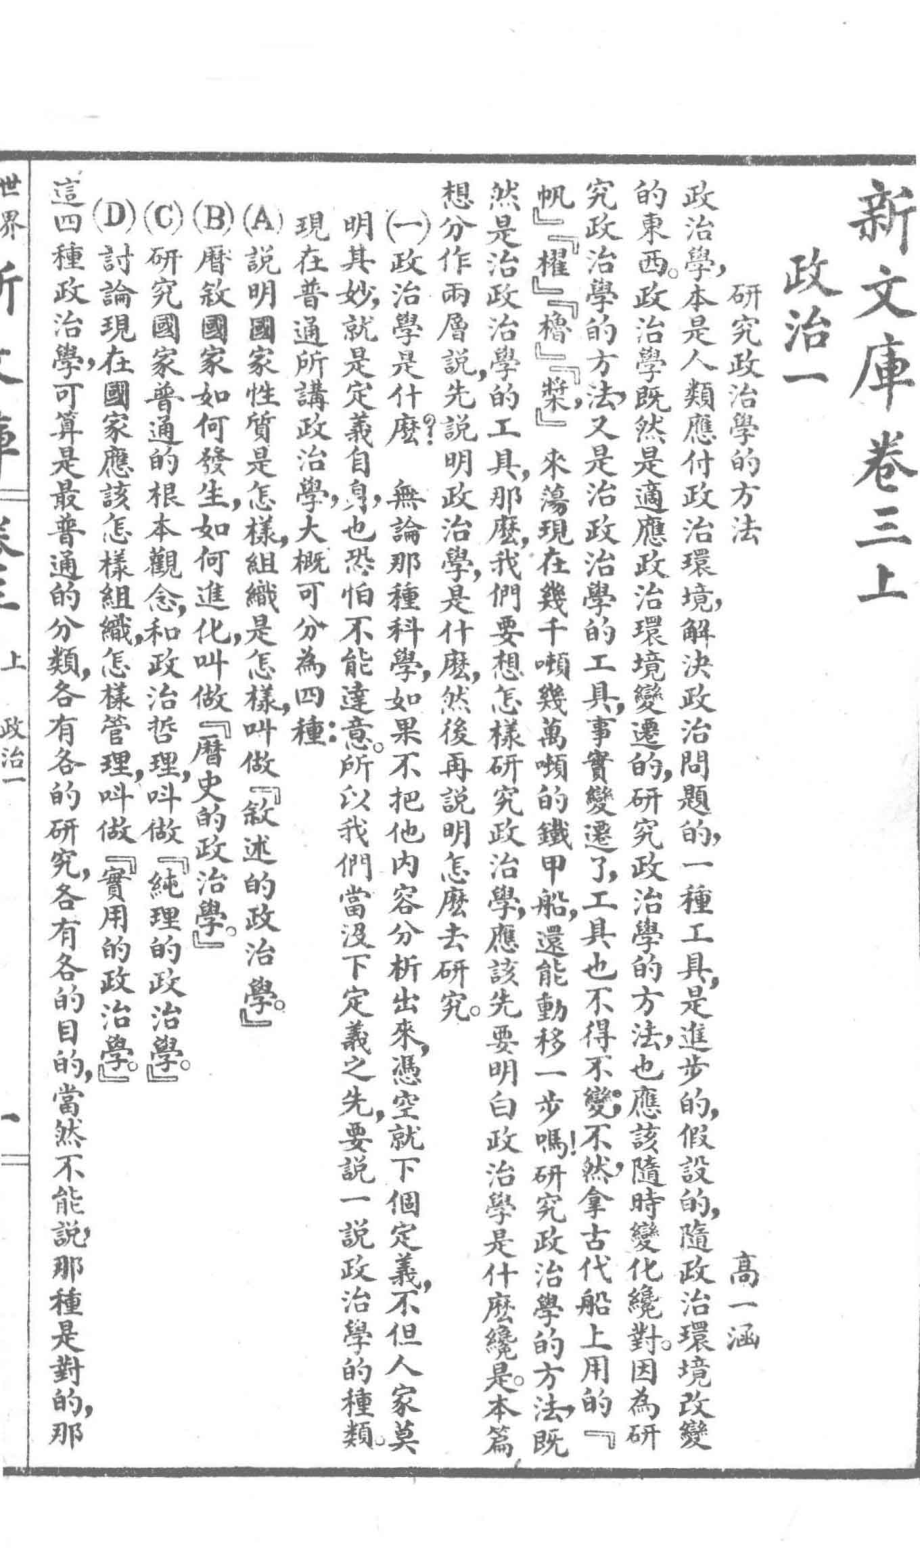 新文庫卷三上
政治一
研究政治學的方法　高一涵
政治學，本是人類應付政治環境，解決政治問題的，一種工具，是進步的，假設的，隨政治環境改變
的東西。政治學既然是適應政治環境變遷的，研究政治學的方法，也應該隨時變化纔對。因為研
究政治學的方法，又是治政治學的工具，事實變遷了，工具也不得不變；不然，拿古代船上用的『
帆』『櫂』『櫓』『槳』來蕩現在幾千噸幾萬噸的鐵甲船，還能動移一步嗎！研究政治學的方法，既
然是治政治學的工具，那麼，我們要想怎樣研究政治學，應該先要明白政治學是什麼纔是。本篇
想分作兩層說，先說明政治學，是什麼，然後再說明怎麼去研究。
㈠政治學是什麼？　無論那種科學，如果不把他內容分析出來，憑空就下個定義，不但人家莫
明其妙，就是定義自身，也恐怕不能達意。所以我們當沒下定義之先，要說一說政治學的種類。
現在普通所講政治學，大概可分為四種：
(A)說明國家性質是怎樣，組織是怎樣，叫做『敘述的政治學。』
(B)曆敘國家如何發生，如何進化，叫做『曆史的政治學。』
(C)研究國家普通的根本觀念，和政治哲理，叫做『純理的政治學。』
(D)討論現在國家應該怎樣組織，怎樣管理，叫做『實用的政治學。』
這四種政治學，可算是最普通的分類，各有各的研究，各有各的目的，當然不能說，那種是對的，那
世界新文庫　卷三　上　政治一　一